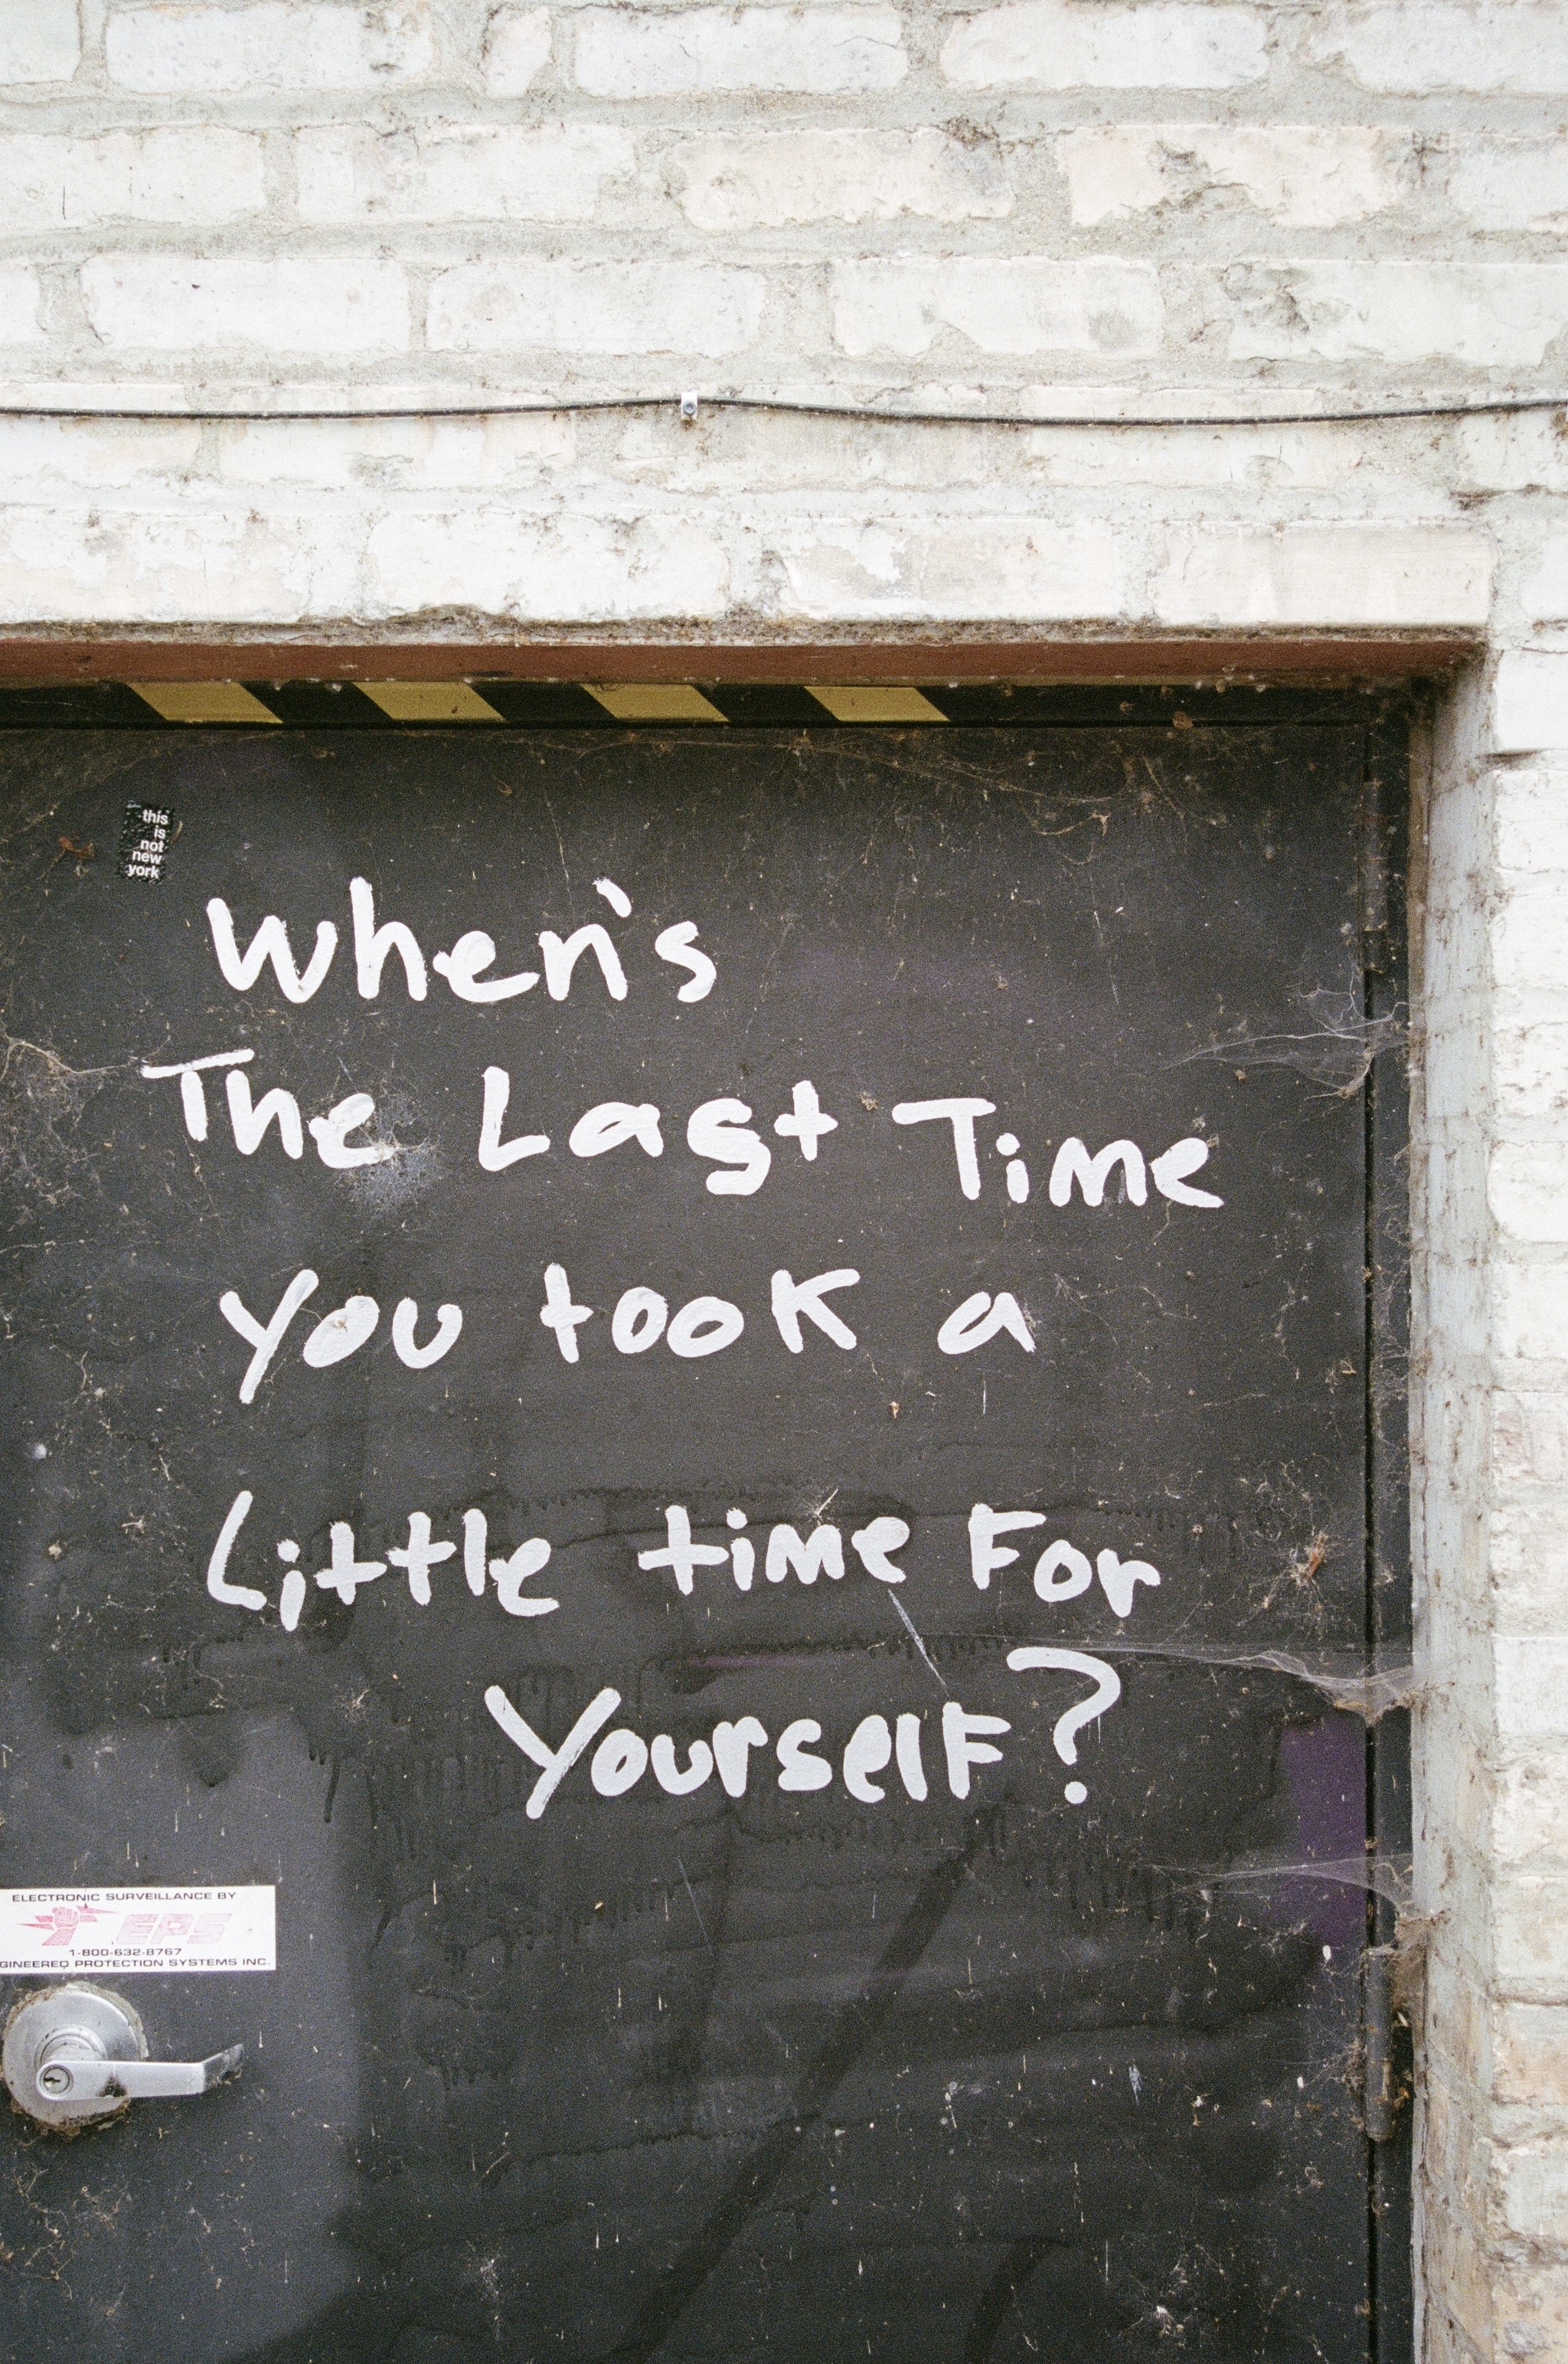 this
is
not
new
york
When's
The Last Time
you took a
Little time For
Yourself?
ELECTRONIC SURVEILLANCE BY
EPS
1-800-632-8767
GINEERED PROTECTION SYSTEMS INC.